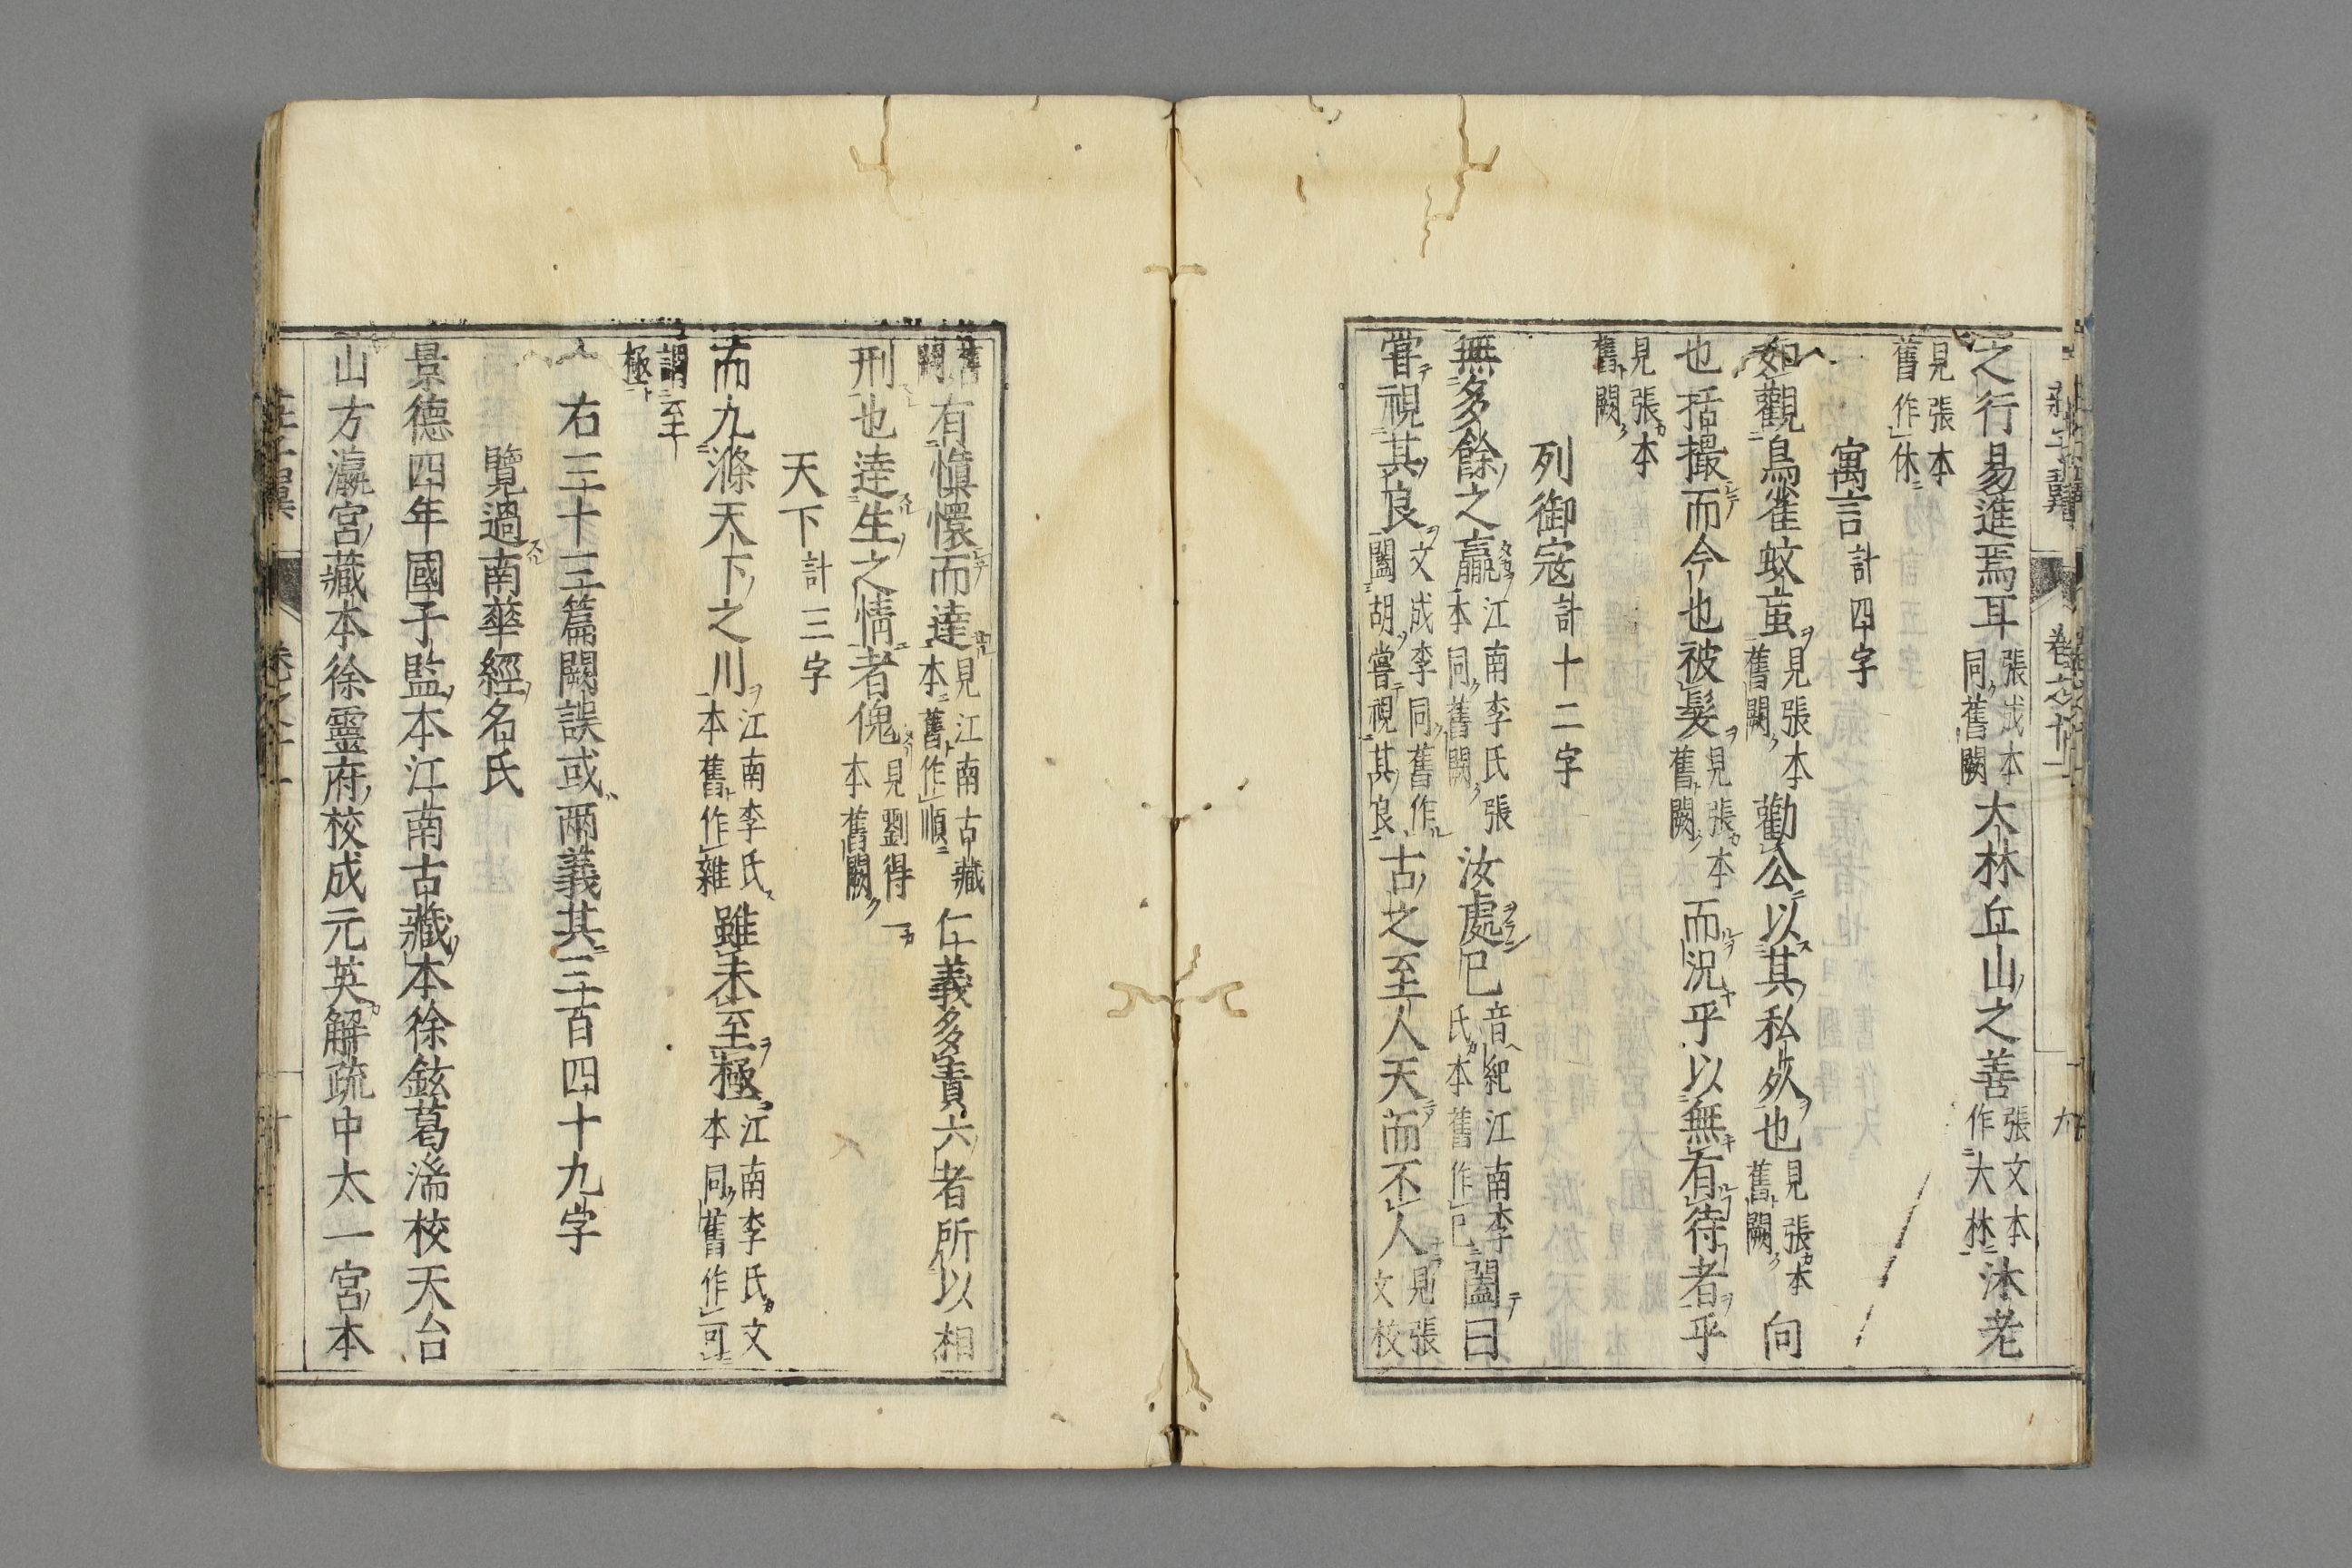 之行易進焉耳張成本同舊闕大林丘山之善張文本作大林沐老
見張本舊作休
寓言計四字
如觀鳥雀蚊䖟見張本舊闕勸公以其私死也見張本舊闕向
也括撮而今也被髮見張本舊闕而況乎以無有待者乎
見張本舊闕
列御宼計十二字
無多餘之贏江南李氏張本同舊闕汝處已音紀江南李氏本舊作巳闔曰
甞視其良文成李同舊作闔胡嘗視其良古之至人天而不人見張文校
舊闕有慎懷而達見江南古藏本舊作順仁義多責六者所以相
刑也達生之情者傀見劉得一本舊闕
天下計三字
而九滌天下之川江南李氏本舊作雜雖未至極江南李氏文本同舊作可
謂至極
右三十三篇闕誤或兩義其三百四十九字
覽過南華經名氏
景德四年國子監本江南古藏本徐鉉葛湍校天台
山方瀛宮藏本徐靈府校成元英解疏中太一宮本